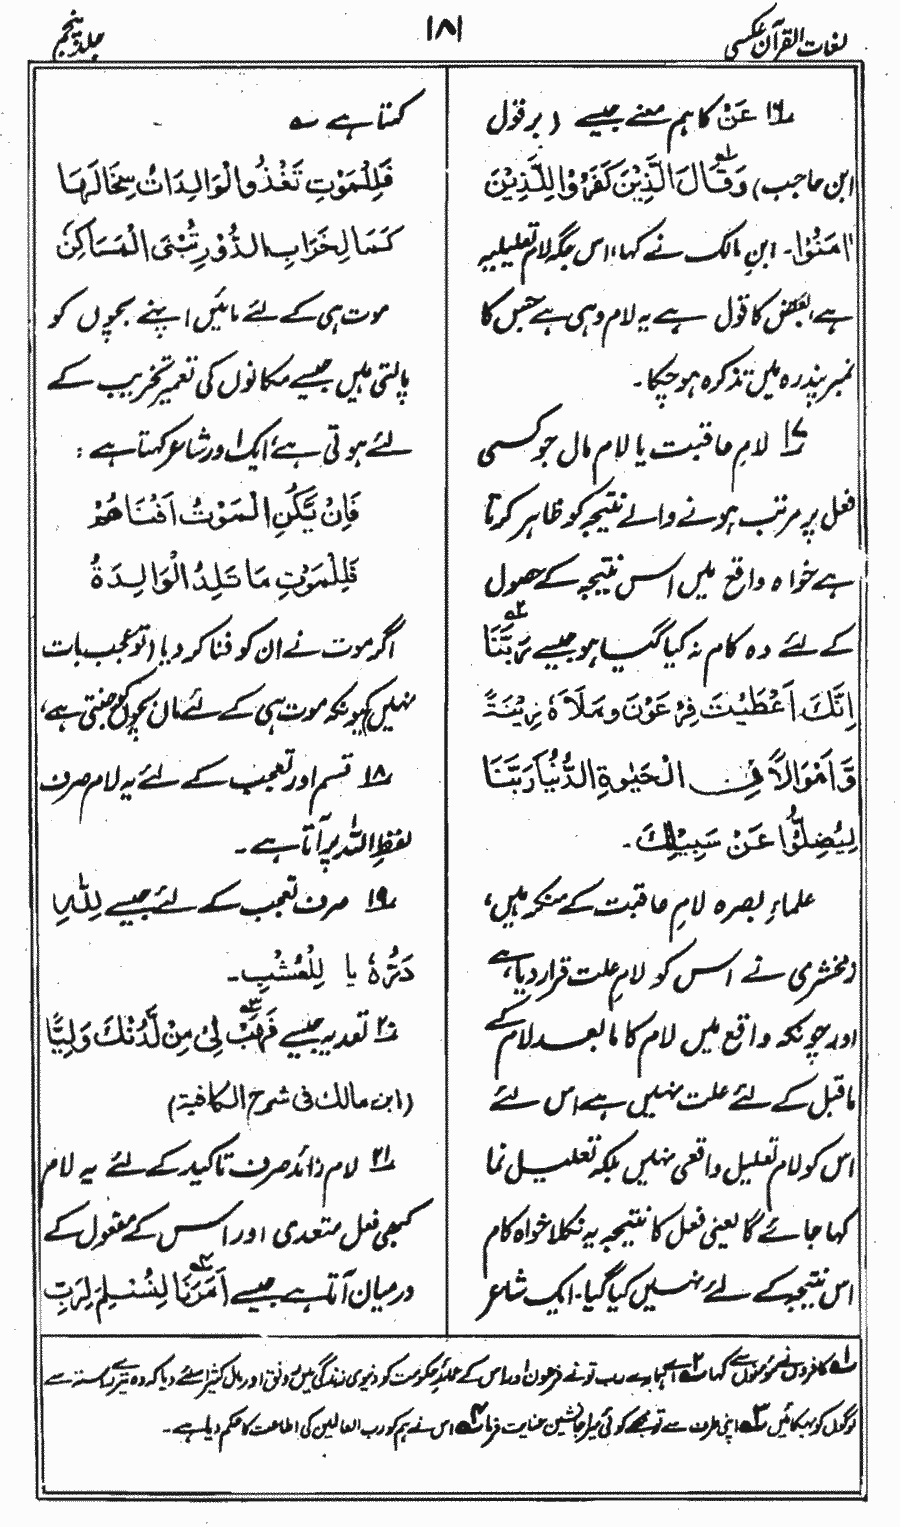 لغات القرآن عکسی
۱۸۱
جلد پنجم
۱۶ عَنْ کا ہم معنے جیسے (بر قول
ابن حاجب) وَقَالَ الَّذِیْنَ کَفَرُوْا لِلَّذِیْنَ
اٰمَنُوْا۔ ابنِ مالک نے کہا، اس جگہ لام تعلیلیہ
ہے، بعض کا قول ہے یہ لام وہی ہے جس کا
نمبر پندرہ میں تذکرہ ہو چکا۔
۱۷ لامِ عاقبت یا لام مال جو کسی
فعل پر مرتب ہونے والے نتیجہ کو ظاہر کرتا
ہے خواہ واقع میں اس نتیجہ کے حصول
کے لئے وہ کام نہ کیا گیا ہو جیسے رَبَّنَا
اِنَّکَ اَعْطَیْتَ فِرْعَوْنَ وَمَلَاَہٗ زِیْنَۃً
وَّاَمْوَالًا فِی الْحَیٰوۃِ الدُّنْیَا رَبَّنَا
لِیُضِلُّوْا عَنْ سَبِیْلِکَ۔
علماءِ بصرہ لامِ عاقبت کے منکر ہیں،
زمخشری نے اس کو لامِ علت قرار دیا ہے،
اور چونکہ واقع میں لام کا مابعد لام کے
ماقبل کے لئے علت نہیں ہے اس لئے
اس کو لام تعلیل واقعی نہیں بلکہ تعلیل نما
کہا جائے گا یعنی فعل کا نتیجہ یہ نکلا خواہ کام
اس نتیجہ کے لئے نہیں کیا گیا۔ ایک شاعر
کہتا ہے ؎
فَلِلْمَوْتِ تَغْذُو الْوَالِدَاتُ سِخَالَہَا
کَمَا لِخَرَابِ الدُّوْرِ تُبْنَی الْمَسَاکِنُ
موت ہی کے لئے مائیں اپنے بچوں کو
پالتی ہیں جیسے مکانوں کی تعمیر تخریب کے
لئے ہوتی ہے، ایک اور شاعر کہتا ہے :
فَاِنْ یَّکُنِ الْمَوْتُ اَفْنَاھُمْ
فَلِلْمَوْتِ مَا تَلِدُ الْوَالِدَۃُ
اگر موت نے ان کو فنا کر دیا (تو عجب بات
نہیں) کیونکہ موت ہی کے لئے ماں بچوں کو جنتی ہے،
۱۸ قسم اور تعجب کے لئے یہ لام صرف
لفظِ اللہ پر آتا ہے۔
۱۹ صرف تعجب کے لئے جیسے لِلّٰہِ
دَرُّہٗ یا لِلْعُشْبِ۔
۲۰ تعدیہ جیسے فَہَبْ لِیْ مِنْ لَّدُنْکَ وَلِیًّا
(ابن مالک فی شرح الکافیۃ)
۲۱ لام زائد صرف تاکید کے لئے یہ لام
کبھی فعل متعدی اور اس کے مفعول کے
درمیان آتا ہے جیسے اُمِرْنَا لِنُسْلِمَ لِرَبِّ
۱ کافروں نے مؤمنوں سے کہا ۲ اے ہمارے رب تو نے فرعون اور اس کے عملۂ حکومت کو دنیوی زندگی میں رونق اور مال کثیر اسلئے دیا کہ وہ تیرے رستہ سے
لوگوں کو بہکائیں ۳ اپنی طرف سے تو مجھے کوئی میرا جانشین عنایت فرما ۴ اس نے ہم کو رب العالمین کی اطاعت کا حکم دیا ہے۔